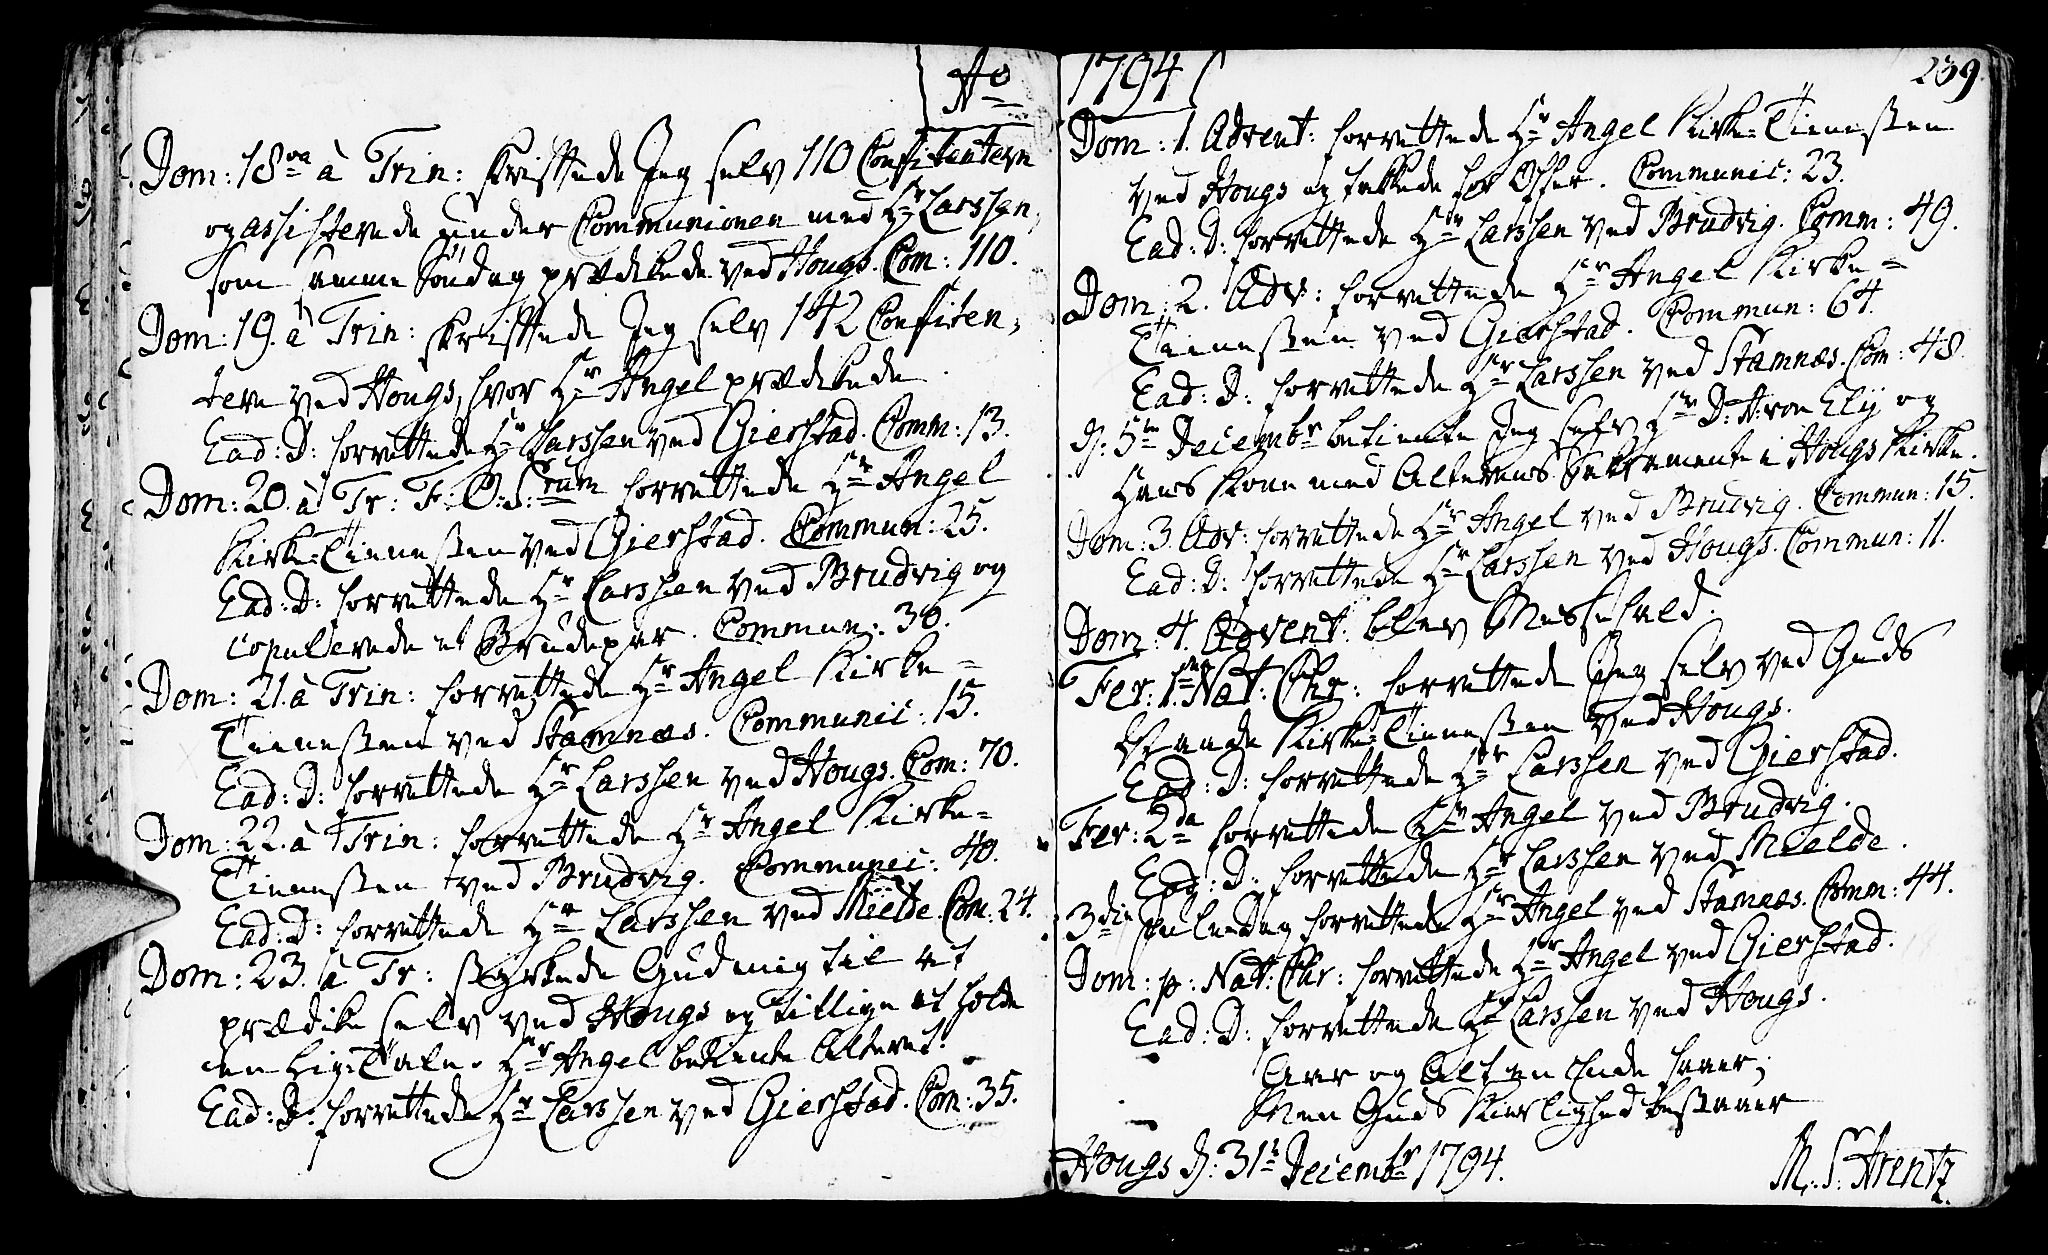 Ao
Dom: 18va à Trin: skriftede Jeg selv 110 Confitentern
og assisterede under Communionen med Hr Larssen,
som samme Søndag prædikede ved Hougs. Com: 110.
Dom: 19. à Trin: skriftede Jeg selv 142 Confiten-
tern ved Hougs, hvor Hr Angel prædikede
Ead: D: forrettede Hr Larssen ved Gierstad. Comm: 13.
Dom: 20. à Tr: F. O. S:rum forrettede Hr Angel
Kirke-Tienesten ved Gierstad. Commun: 25.
Ead: D: forrettede Hr Larssen ved Brudvig og
copulerede et Brudepar. Commun: 30.
Dom: 21. à Trin: forrettede Hr Angel Kirke-
Tienesten ved Stamnæs. Communic: 15.
Ead: D: forrettede Hr Larssen ved Hougs. Com: 70.
Dom: 22. à Trin: forrettede Hr Angel Kirke-
Tienesten ved Brudvig. Communic: 40.
Ead: D: forrettede Hr Larssen ved Mielde. Com: 24.
Dom: 23. à Tr: styrkede Gud mig til at
prædike selv ved Hougs og tillige at holde
en Lig-Tale. Hr Angel betiente Alteret.
Ead: D: forrettede Hr Larssen ved Gierstad. Com: 35.
1794
239.
Dom: 1. Advent: forrettede Hr Angel Kirke-Tienesten
ved Hougs og takkede for Offer. Communic: 23.
Ead: D: forrettede Hr Larssen ved Brudvig. Comm: 49.
Dom: 2. Adv: forrettede Hr Angel Kirke-
Tienesten ved Gierstad. Commun: 64.
Ead: D: forrettede Hr Larssen ved Stamnæs. Com: 48.
D: 5te Decembr betiente Jeg selv Hr D: H: von Elÿ og
Hans Kone med Alterens Sakrament i Hougs Kirke.
Dom: 3. Adv: forrettede Hr Angel ved Brudvig. Commun: 15.
Ead: D: forrettede Hr Larssen ved Hougs. Commun: 11.
Dom: 4. Advent: blev Messefald.
Fer: 1ma Nat: Chr: forrettede Jeg selv ved Guds
Naade Kirke-Tienesten ved Hougs.
Ead: D: forrettede Hr Larssen ved Gierstad.
Fer: 2da forrettede Hr Angel ved Brudvig.
Ead: D: forrettede Hr Larssen ved Mielde.
3die Juledag forrettede Hr Angel ved Stamnæs. Comm: 44.
Dom: p: Nat: Chr: forrettede Hr Angel ved Gierstad.
Ead: D: forrettede Hr Larssen ved Hougs.
Aar og Alt en Ende faaer;
Men Guds Kierlighed bestaaer
Hougs d: 31te Decembr 1794.
M. S. Arentz.